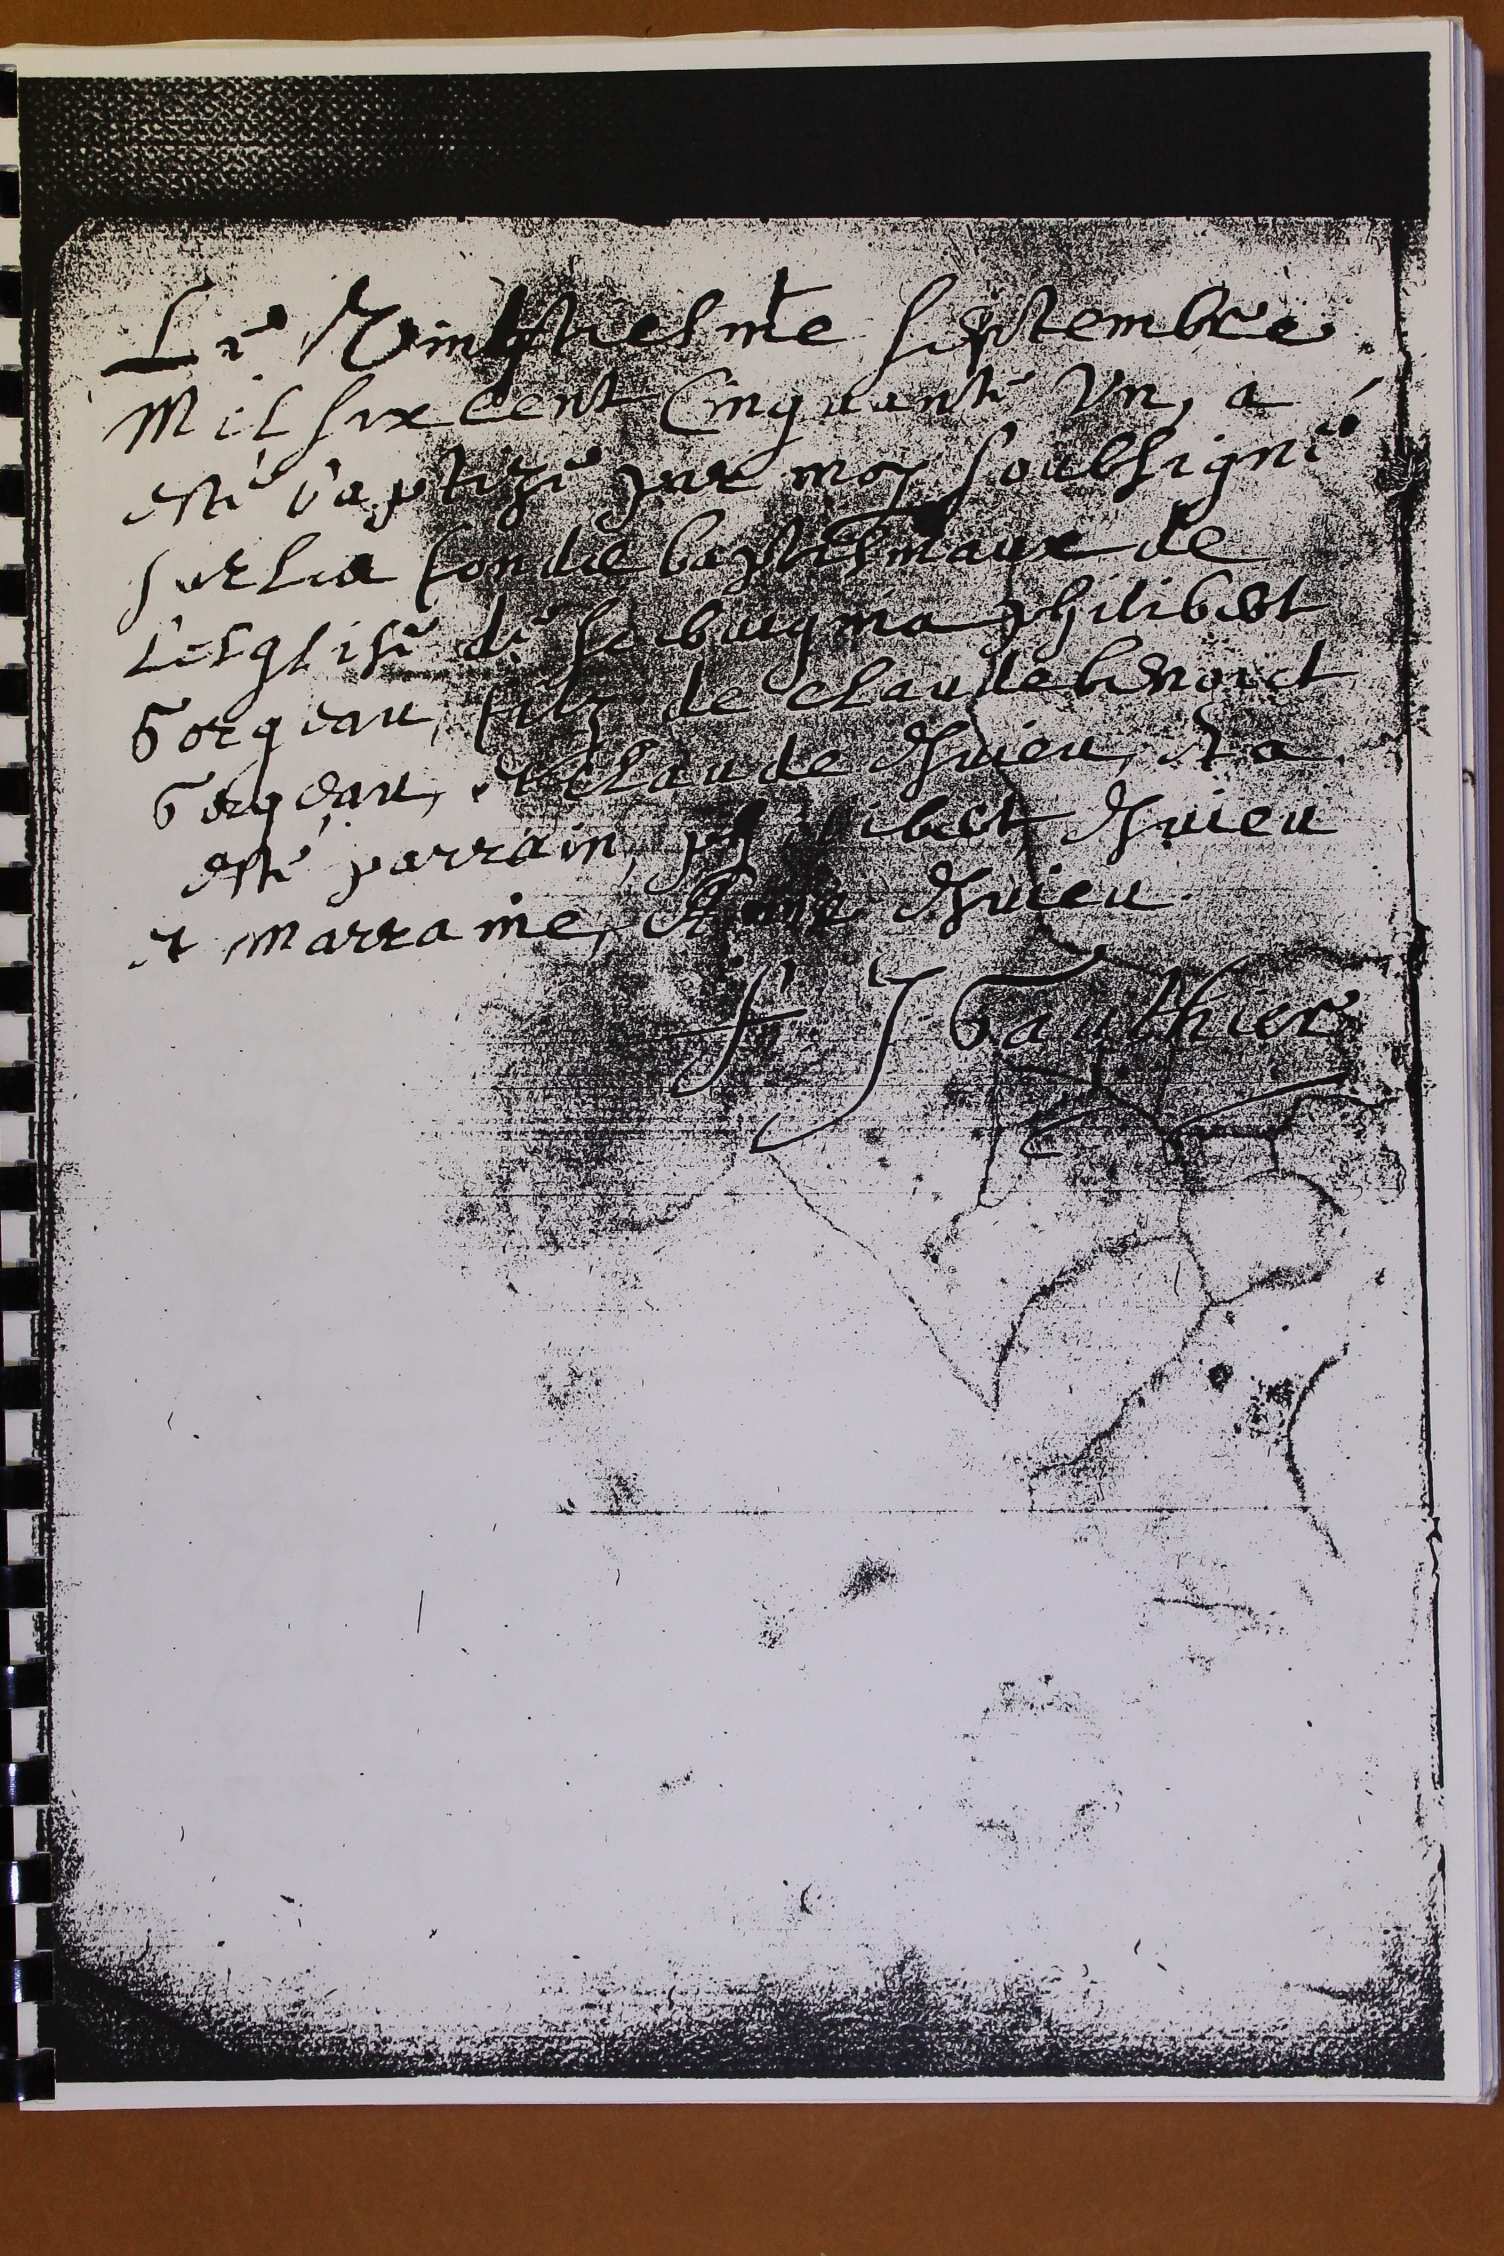 Le Vingtiesme Septembre
Mil six cent Cinquante Un, a
esté baptizé par moy soubsigné
sur les fondz baptismaux de
L'esglise de philibert
Gorgeau, filz de Claude benoict
Gorgeau, et Claude Guieu, et a
esté parrain, philibert Guieu
et marraine, Guieu
fr. J Gauthier